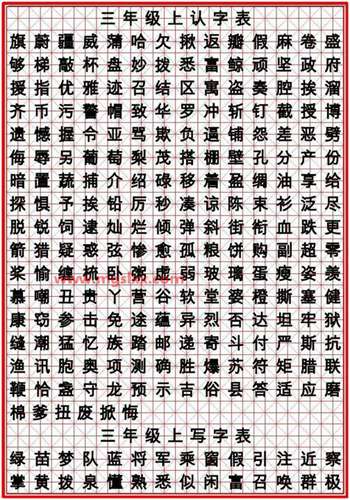 三年级上认字表
旗蔚疆威蒲哈欠揪返瓣假麻卷盛
够梯敲杯盘妙拨悉富鲸顽坚政府
援指优雅迹召结区寓盗奏腔挨溜
齐币污警帽致华罗冲斩钉截授博
遗憾握令亚骂欺负逼铺怨差恶劈
侮辱另葡萄梨茂搭棚壁孔分产份
暗置蔬捕介绍碌移着盈绸油享给
探惧予挨铅厉秒凑谅陈束衫泛尽
脱锐饲逮灿烂倾弹斜街衔血跌更
箭猎疑惑弦惨愈孤粮饼购副超零
桨愉缠梳卧粥虚弱玻璃蛋瘦姿羡
慕嘲丑贵丫营谷软堂婆橙撕塞健
康窃参击免途蕴异烈否达坦牢狱
缝潮猛忆族踏邮递寄斗付严斯抗
渔讯胞奥项测确胜爆苏符矩腊联
鞭恰盏守龙预示吉俗县答适应磨
棉爹扭废掀悔
三年级上写字表
绿苗梦队蓝将军乘窗假引注近察
掌黄拨泉懂熟悉似闲富召唤群极
www.mgshw.com